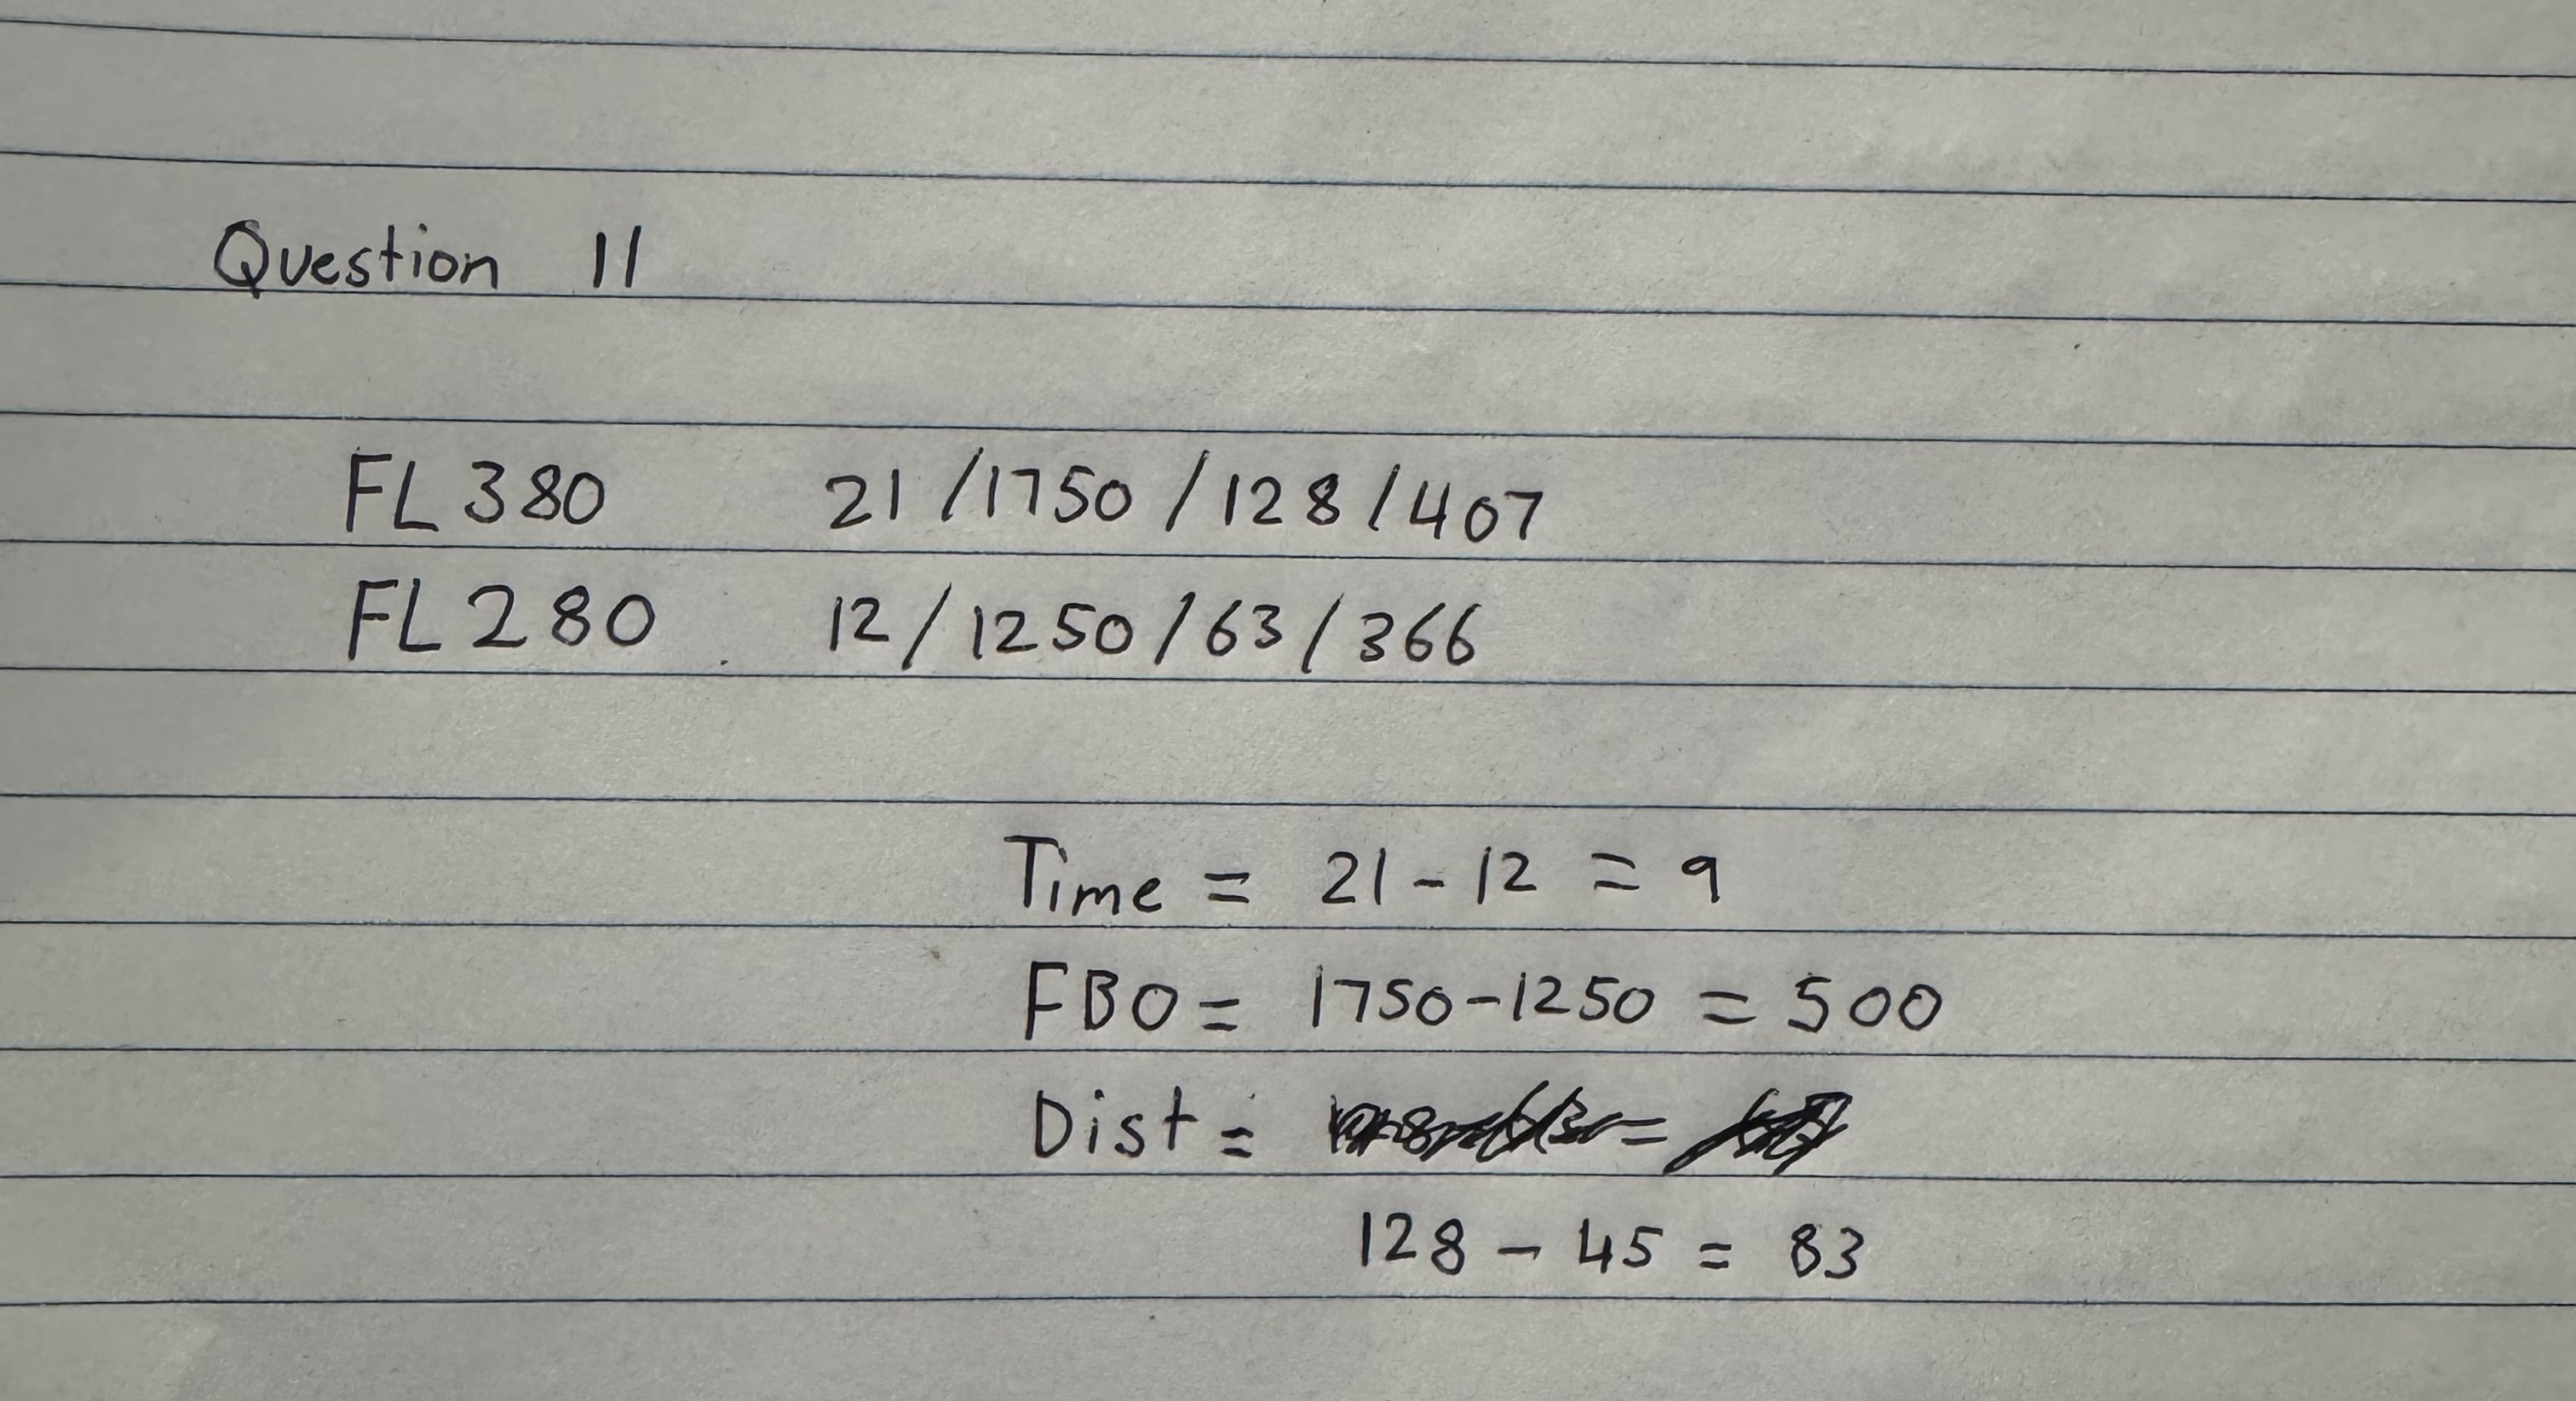 Question 11
FL 380 21/1750/128/407
FL 280 12/1250/63/366
Time = 21-12 = 9
FBO = 1750-1250 = 500
Dist =
128 - 45 = 83